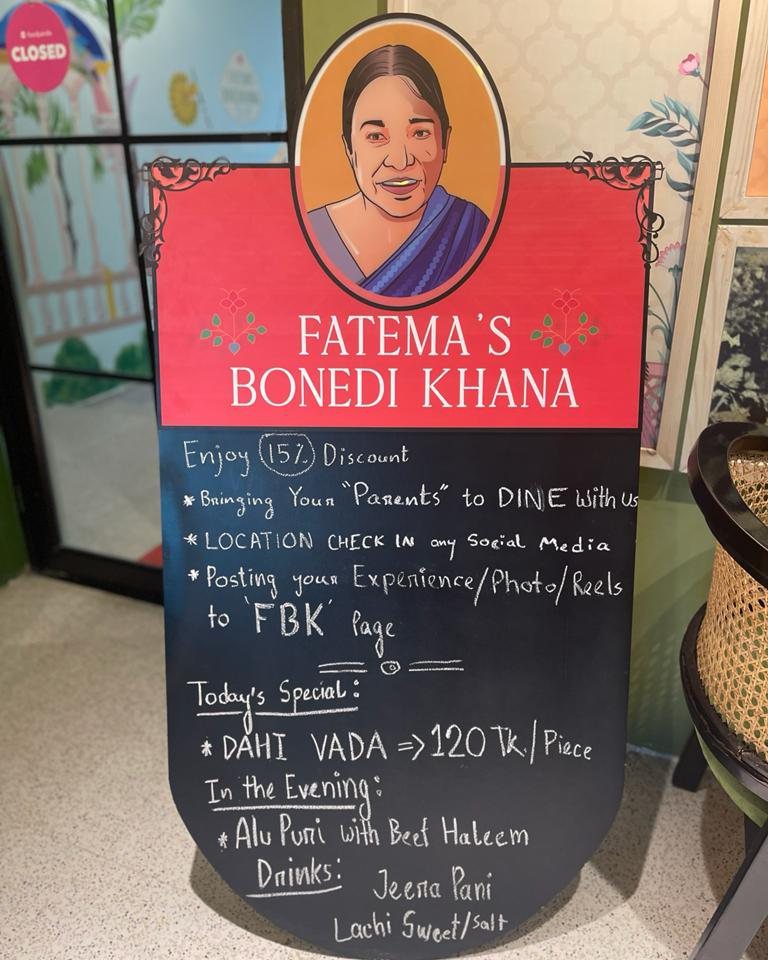 foodpanda
CLOSED
FATEMA'S
BONEDI KHANA
Enjoy 15% Discount
* Bringing Your "Parents" to DINE With Us
* LOCATION CHECK IN any Social Media
* Posting your Experience/Photo/Reels
to 'FBK' Page
Today's Special:
* DAHI VADA => 120 Tk/Piece
In the Evening:
* Alu Puri with Beef Haleem
Drinks: Jeera Pani
Lachi Sweet/Salt